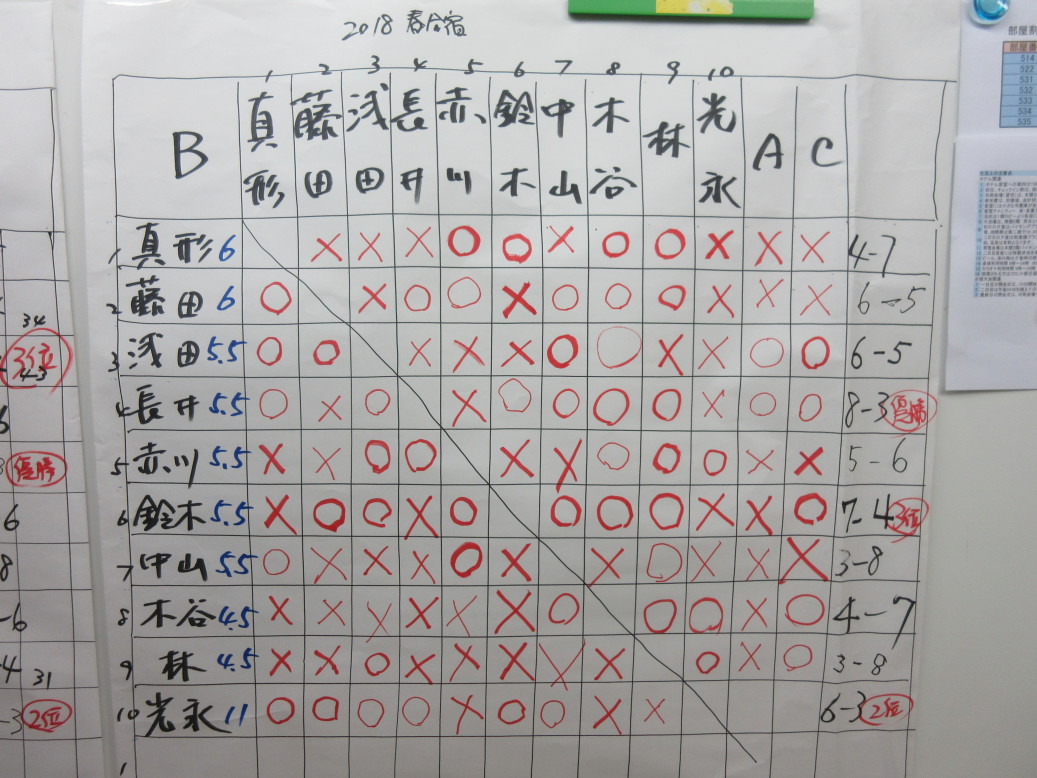 2018 春合宿
1 2 3 4 5 6 7 8 9 10
B 真形 藤田 浅田 長井 赤川 鈴木 中山 木谷 林 光永 A C
1 真形 6 × × × ○ ○ × ○ ○ × × × 4-7
2 藤田 6 ○ × ○ ○ × ○ ○ ○ × × × 6-5
3 浅田 5.5 ○ ○ × × × ○ ○ × × ○ ○ 6-5
4 長井 5.5 ○ × ○ × ○ ○ ○ ○ × ○ ○ 8-3 優勝
5 赤川 5.5 × × ○ ○ × × ○ ○ ○ × × 5-6
6 鈴木 5.5 × ○ ○ × ○ ○ ○ ○ × × ○ 7-4 3位
7 中山 5.5 ○ × × × ○ × × ○ × × × 3-8
8 木谷 4.5 × × × × × × ○ ○ ○ × ○ 4-7
9 林 4.5 × × ○ × × × × × ○ × ○ 3-8
10 光永 11 ○ ○ ○ ○ × ○ ○ × × 6-3 2位
34
3位
4-3
優勝
6
8
-6
-4 31
-3 2位
部屋割
部屋番
514
522
531
532
533
534
535